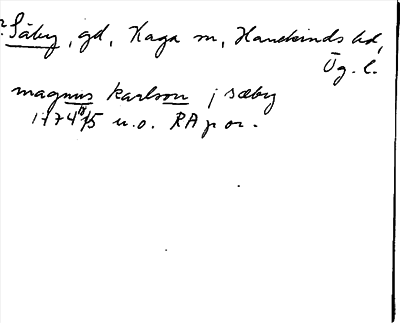 Säby, gd, Haga sn, Hanekinds hd,
Ög. l.
magnus karlson j sæby
u.o. RA p or.